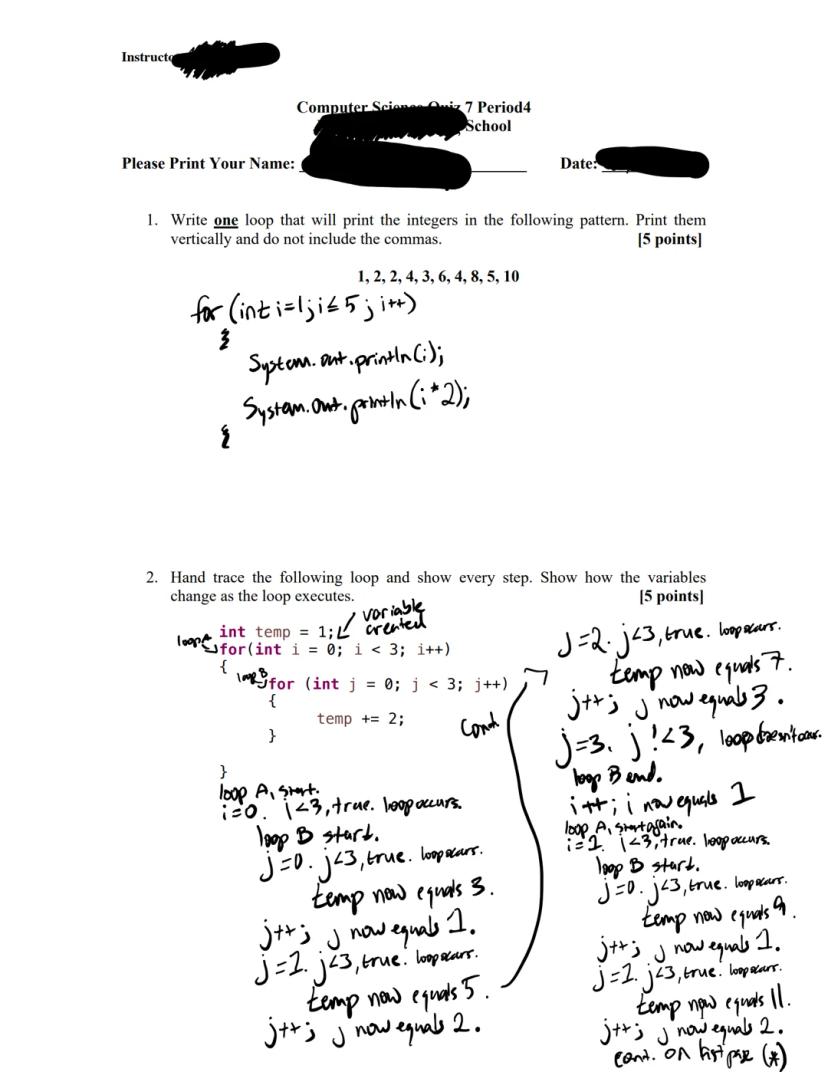 Instructo
Computer Science Quiz 7 Period4
School
Please Print Your Name:
Date:
1. Write one loop that will print the integers in the following pattern. Print them
vertically and do not include the commas. [5 points]
1, 2, 2, 4, 3, 6, 4, 8, 5, 10
for (int i=1; i≤5; i++)
{
System.out.println(i);
System.out.println(i*2);
}
2. Hand trace the following loop and show every step. Show how the variables
change as the loop executes. [5 points]
variable
created
int temp = 1;
loop A
for(int i = 0; i < 3; i++)
{
loop B
for (int j = 0; j < 3; j++)
{
temp += 2;
}
}
Cont
loop A, start.
i=0. i<3, true. loop occurs.
loop B start.
j=0. j<3, true. loop occurs.
temp now equals 3.
j++; j now equals 1.
j=1. j<3, true. loop occurs.
temp now equals 5.
j++; j now equals 2.
j=2. j<3, true. loop occurs.
temp now equals 7.
j++; j now equals 3.
j=3. j!<3, loop doesn't occur.
loop B end.
i++; i now equals 1
loop A, start again.
i=1. i<3, true. loop occurs.
loop B start.
j=0. j<3, true. loop occurs.
temp now equals 9.
j++; j now equals 1.
j=1. j<3, true. loop occurs.
temp now equals 11.
j++; j now equals 2.
cont. on last page (*)